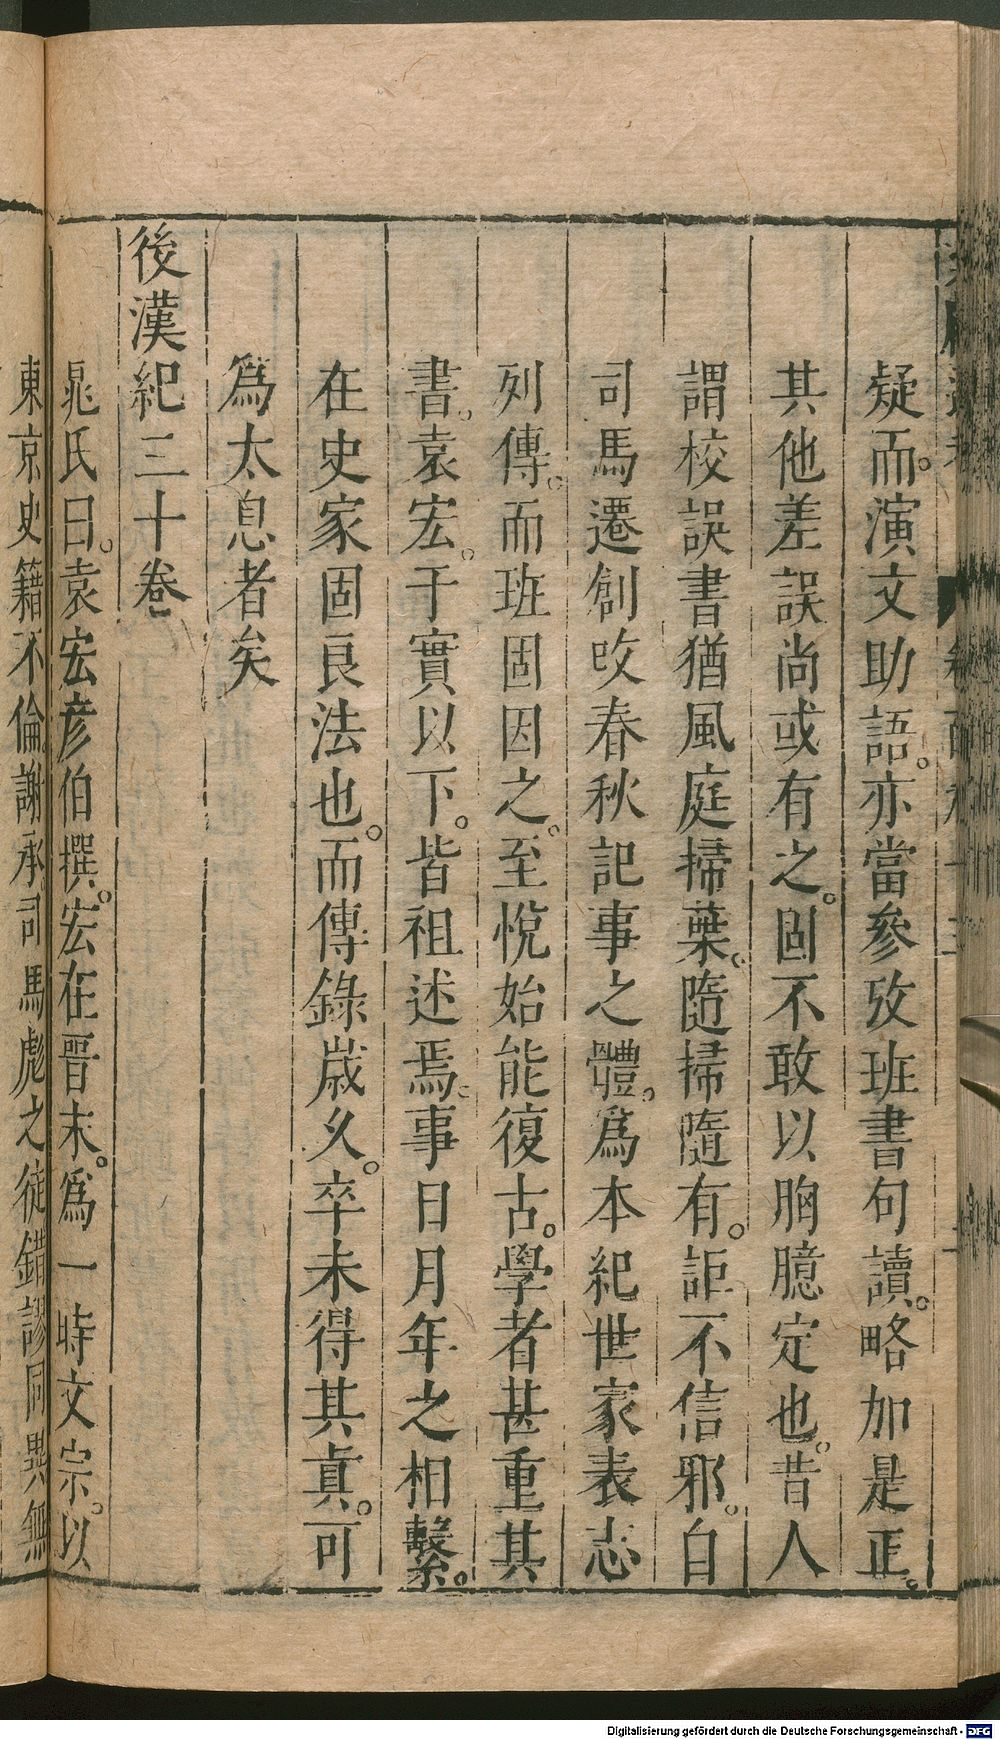 疑而。演文助語。亦當參攷班書句讀。略加是正。
其他差誤尚或有之。固不敢以胸臆定也。昔人
謂校誤書猶風庭掃葉。隨掃隨有。詎不信邪。自
司馬遷創攺春秋記事之體。爲本紀世家表志
列傳。而班固因之。至悅始能復古。學者甚重其
書。袁宏。于實以下。皆祖述焉。事日月年之相繫。
在史家固良法也。而傳錄歲久。卒未得其眞。可
爲太息者矣
後漢紀三十卷
晁氏曰。袁宏彥伯撰。宏在晉末。爲一時文宗。以
東京史籍不倫謝承司馬彪之徒錯謬同異無
Digitalisierung gefördert durch die Deutsche Forschungsgemeinschaft - DFG